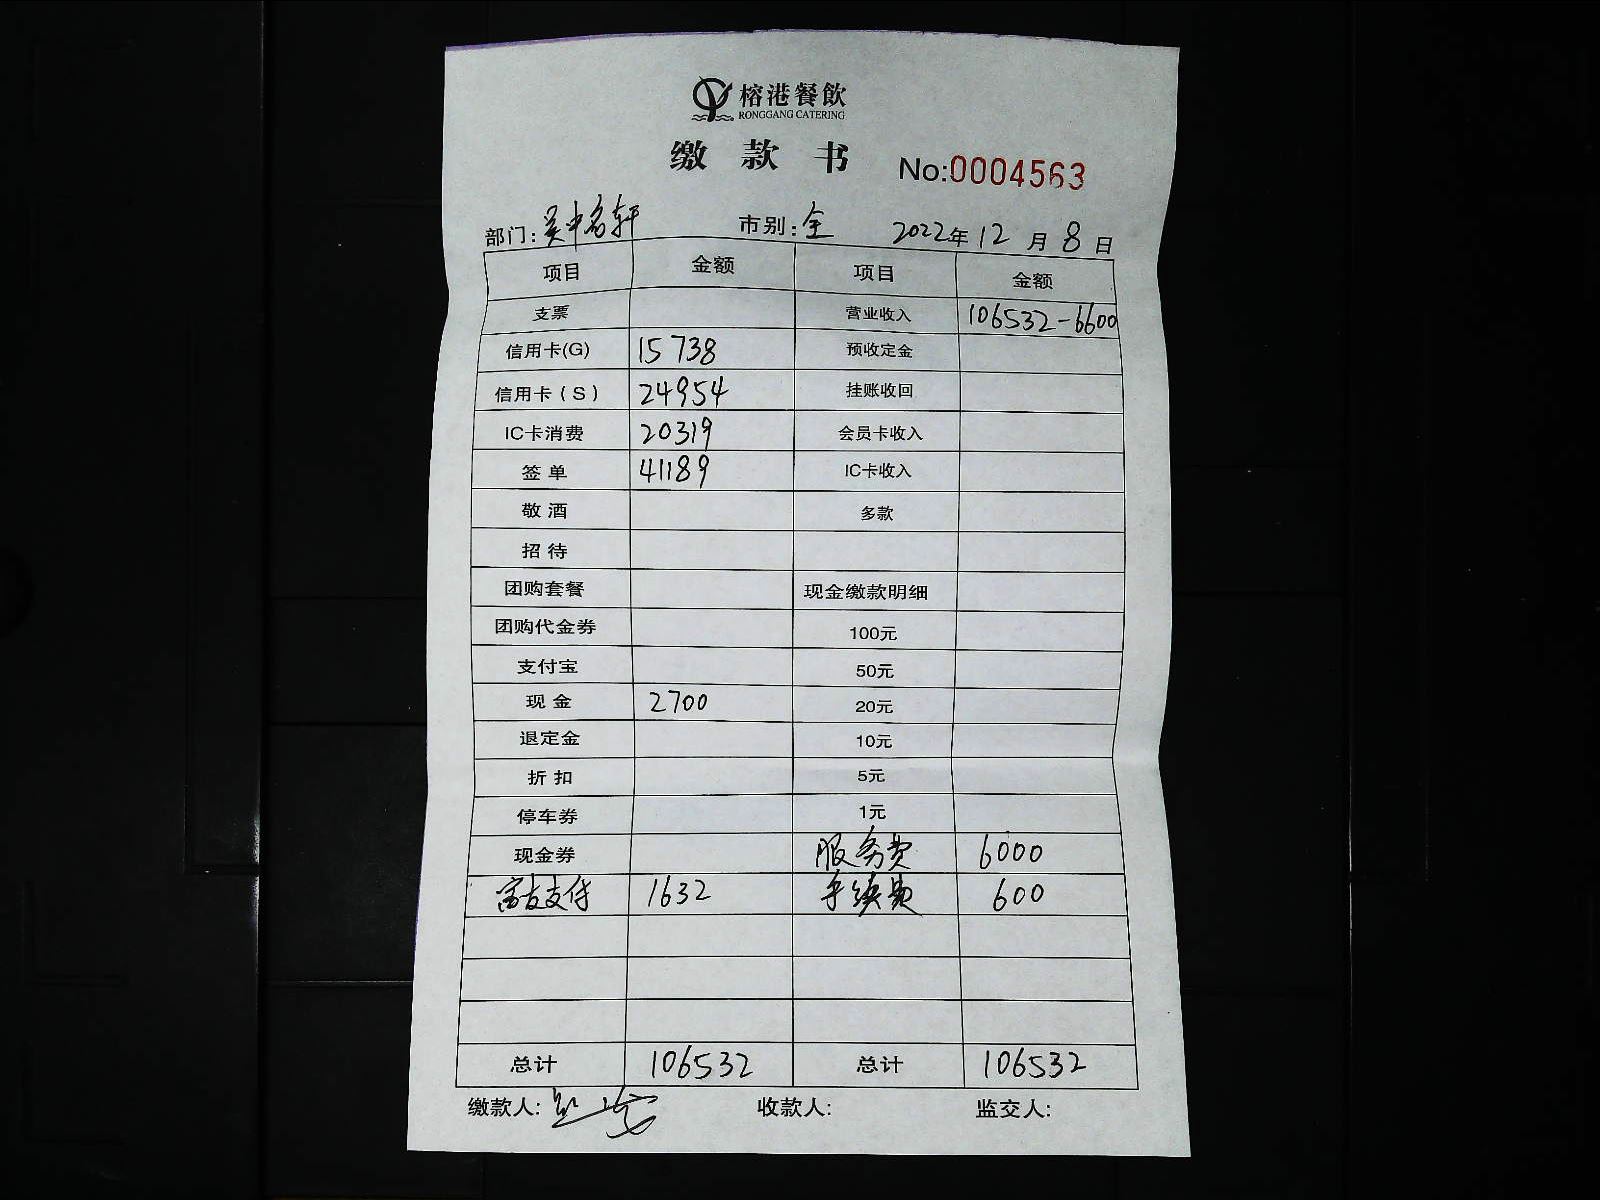 榕港餐飲
RONGGANG CATERING
缴款书 No:0004563
部门: 吴中名轩 市别: 全 2022年12月8日
项目 金额 项目 金额
支票 营业收入 106532-6600
信用卡(G) 15738 预收定金
信用卡(S) 24954 挂账收回
IC卡消费 20319 会员卡收入
签单 41189 IC卡收入
敬酒 多款
招待
团购套餐 现金缴款明细
团购代金券 100元
支付宝 50元
现金 2700 20元
退定金 10元
折扣 5元
停车券 1元
现金券 服务费 6000
富友支付 1632 手续费 600
总计 106532 总计 106532
缴款人: 收款人: 监交人: